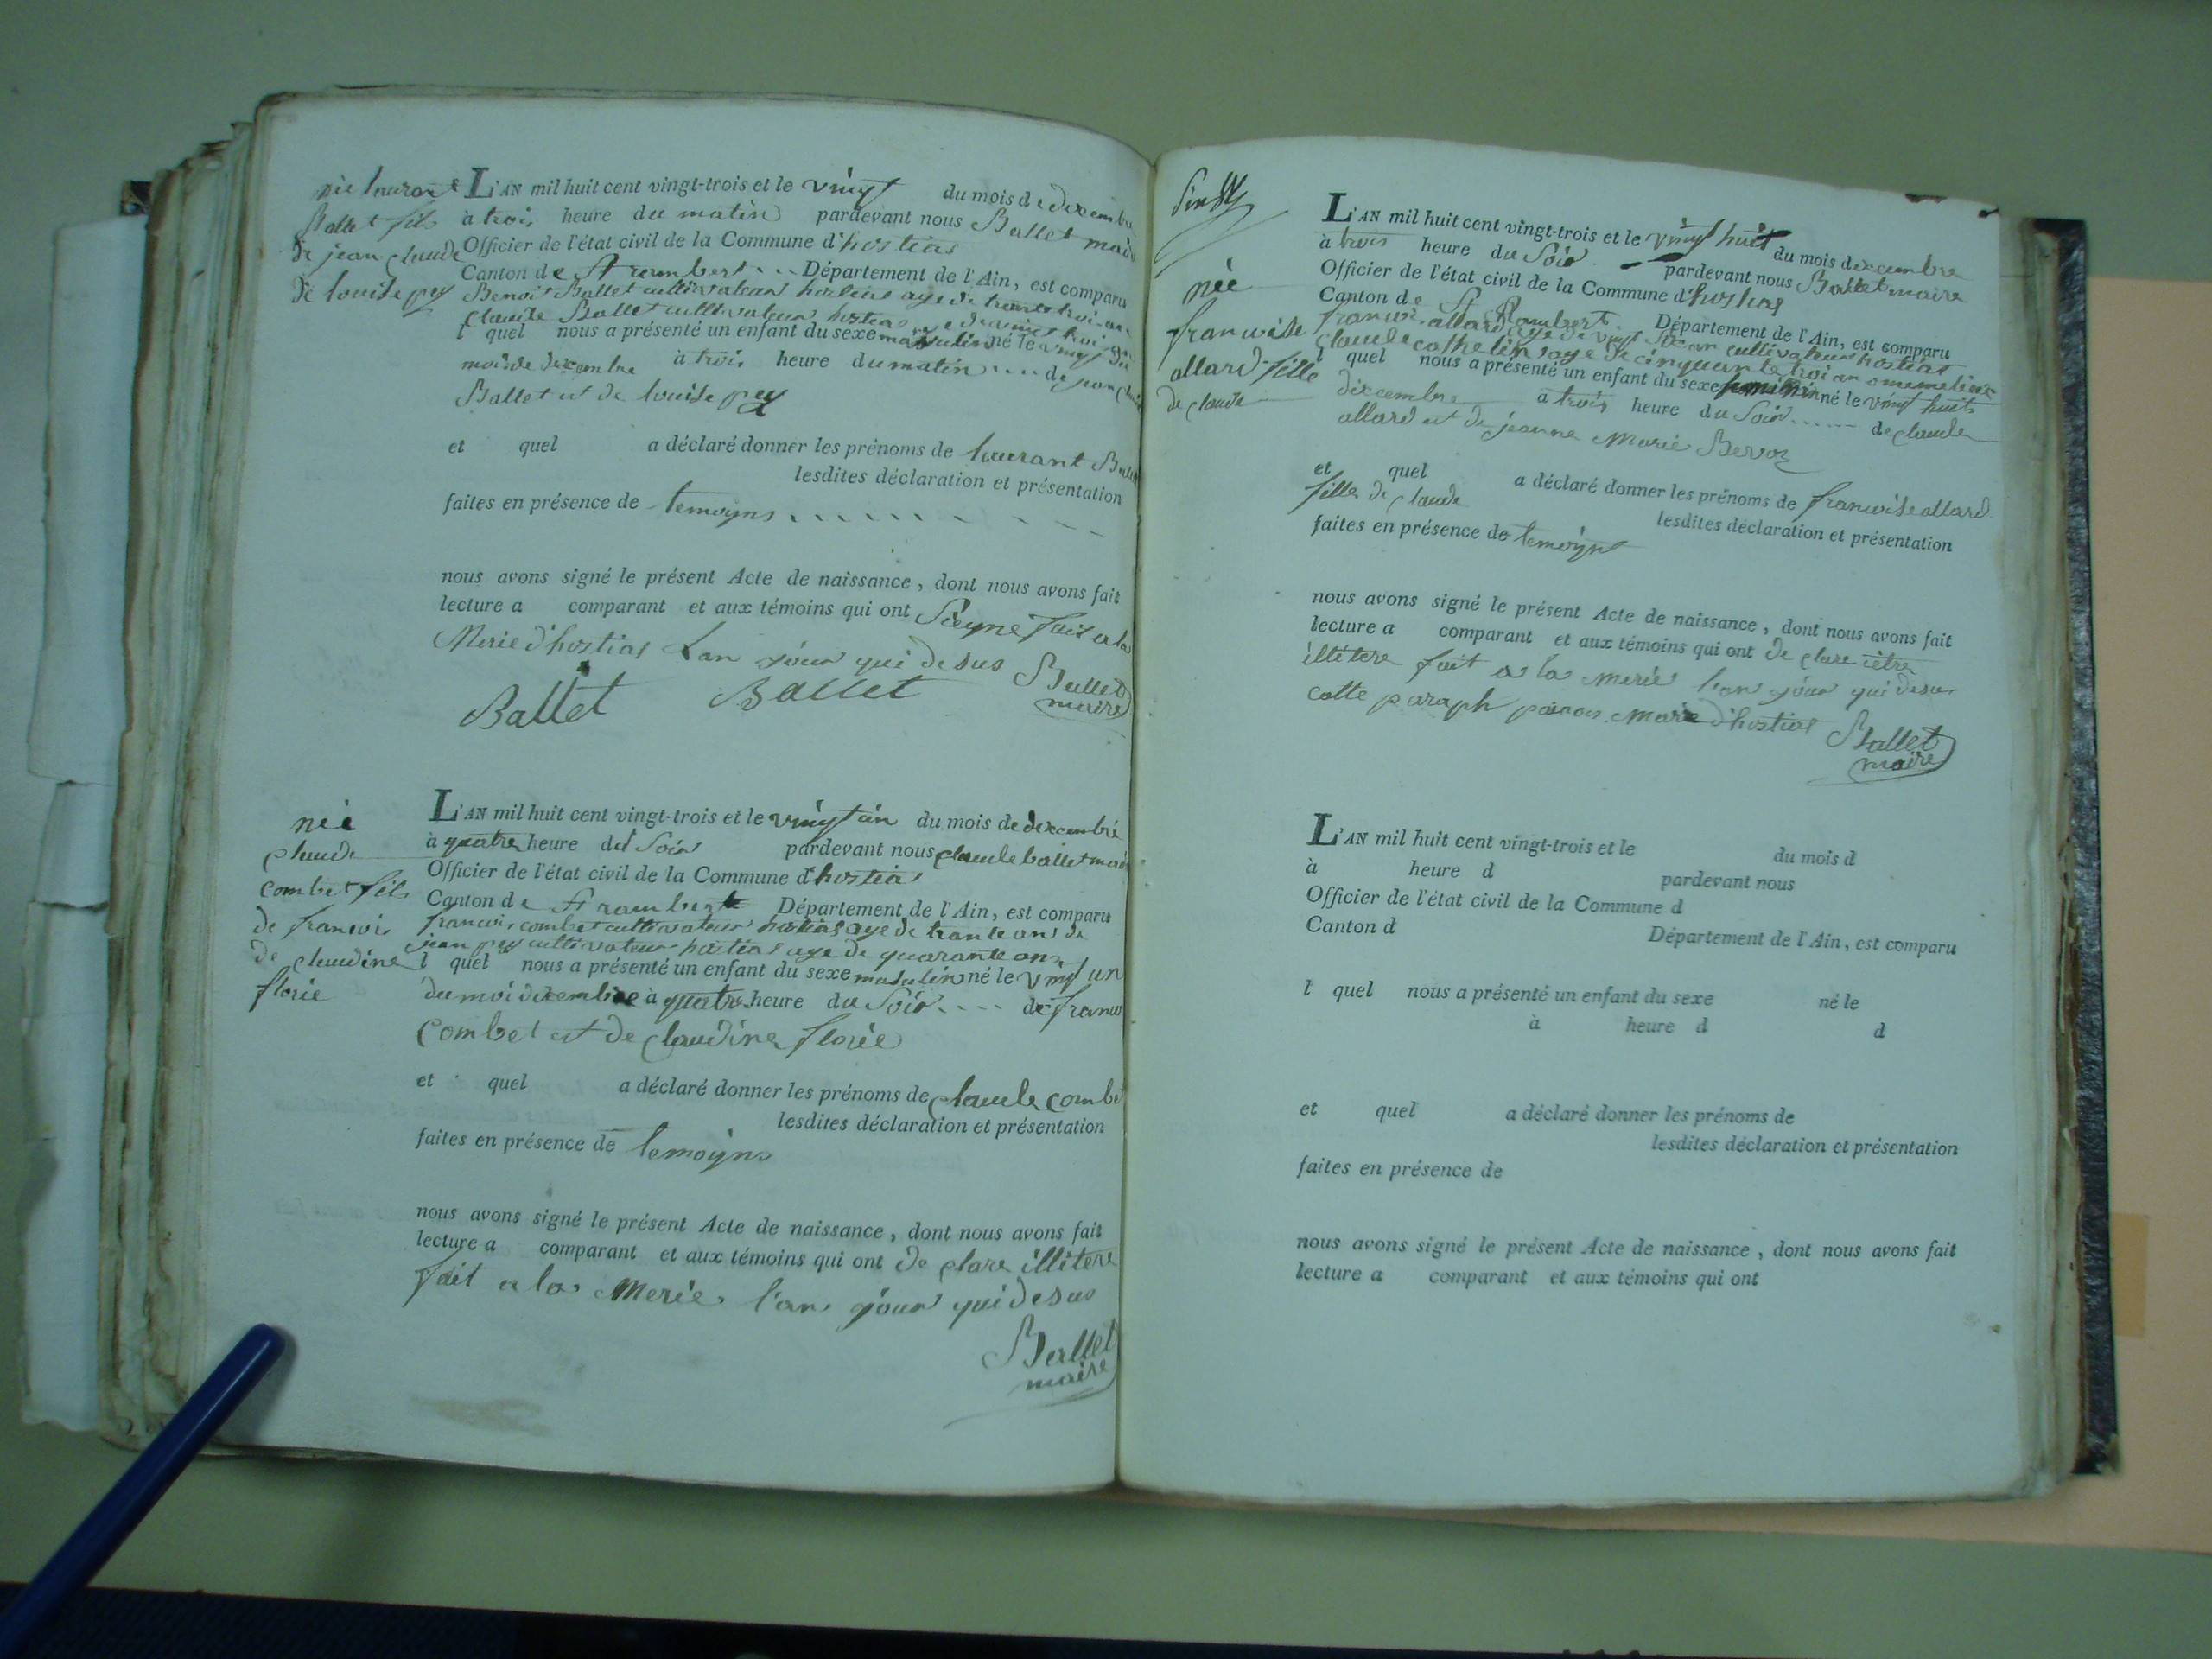 née laurant
Ballet fils
de jean claude
de louise pey
L'AN mil huit cent vingt-trois et le vingt du mois de decembre
à trois heure du matin pardevant nous Ballet maire
Officier de l'état civil de la Commune d'hostias
Canton de St rambert Département de l'Ain, est comparu
Benoit Ballet cultivateur hostias age de trente trois ans
claude Ballet cultivateur hostias age de vingt trois ans
l quel nous a présenté un enfant du sexe masculin né le vingt du
mois de decembre à trois heure du matin .... de jean claude
Ballet et de louise pey
et quel a déclaré donner les prénoms de laurant Ballet
lesdites déclaration et présentation
faites en présence de temoyns
nous avons signé le présent Acte de naissance, dont nous avons fait
lecture a comparant et aux témoins qui ont Sieyne fait a la
Merie d'hostias L'an jour qui desus Ballet
maire
Ballet Ballet
née
claude
combet fils
de francois
de claudine
florie
L'AN mil huit cent vingt-trois et le vingt un du mois de decembre
à quatre heure du Soir pardevant nous claude ballet maire
Officier de l'état civil de la Commune d'hostias
Canton de St rambert Département de l'Ain, est comparu
francois combet cultivateur hostias age de trante ans de
jean pey cultivateur hostias age de quarante ans
l quel nous a présenté un enfant du sexe masculin né le vingt un
du moi decembre à quatre heure du Soir .... de francois
Combet et de claudine florie
et quel a déclaré donner les prénoms de claude combet
lesdites déclaration et présentation
faites en présence de temoyns
nous avons signé le présent Acte de naissance, dont nous avons fait
lecture a comparant et aux témoins qui ont de clare illitere
fait a la Merie l'an jour qui desus
Ballet
maire
née
francoise
allard fille
de claude
L'AN mil huit cent vingt-trois et le vingt huit du mois decembre
à trois heure du Soir pardevant nous Ballet maire
Officier de l'état civil de la Commune d'hostias
Canton de St Rambert Département de l'Ain, est comparu
francoi allard age de vingt an cultivateur hostias
claude cothelin age de cinquante troi an
l quel nous a présenté un enfant du sexe feminin né le vingt huit
decembre à trois heure du Soir ..... de claude
allard et de jeanne Marie Bervoz
et quel a déclaré donner les prénoms de francoise allard
fille de claude lesdites déclaration et présentation
faites en présence de temoyn
nous avons signé le présent Acte de naissance, dont nous avons fait
lecture a comparant et aux témoins qui ont de clare iètre
illétere fait a la Merie l'an jour qui desu
cotte paraph Maire d'hostias Ballet
maire
L'AN mil huit cent vingt-trois et le du mois d
à heure d pardevant nous
Officier de l'état civil de la Commune d
Canton d Département de l'Ain, est comparu
l quel nous a présenté un enfant du sexe né le
à heure d d
et quel a déclaré donner les prénoms de
lesdites déclaration et présentation
faites en présence de
nous avons signé le présent Acte de naissance, dont nous avons fait
lecture a comparant et aux témoins qui ont